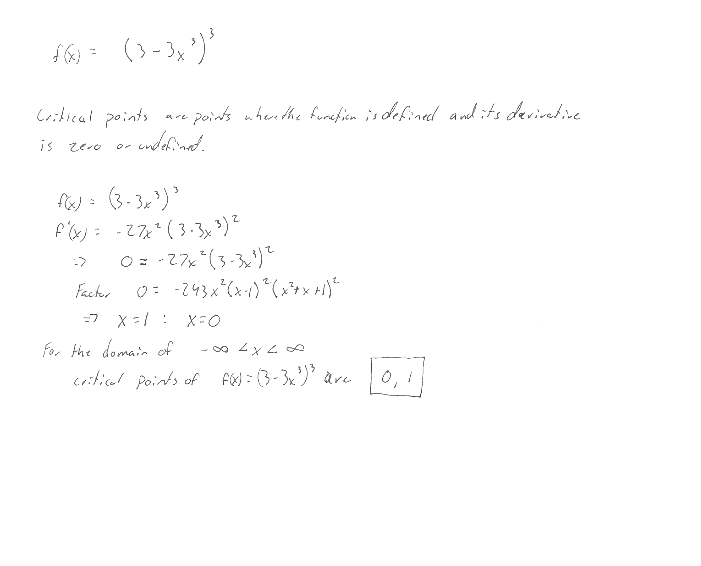 f(x) = (3 - 3x³)³
Critical points are points where the function is defined and its derivative
is zero or undefined.
f(x) = (3 - 3x³)³
f'(x) = -27x²(3 - 3x³)²
=> 0 = -27x²(3 - 3x³)²
Factor 0 = -243x²(x-1)²(x²+x+1)²
=> x=1 : x=0
For the domain of -∞ < x < ∞
critical points of f(x) = (3 - 3x³)³ are 0, 1